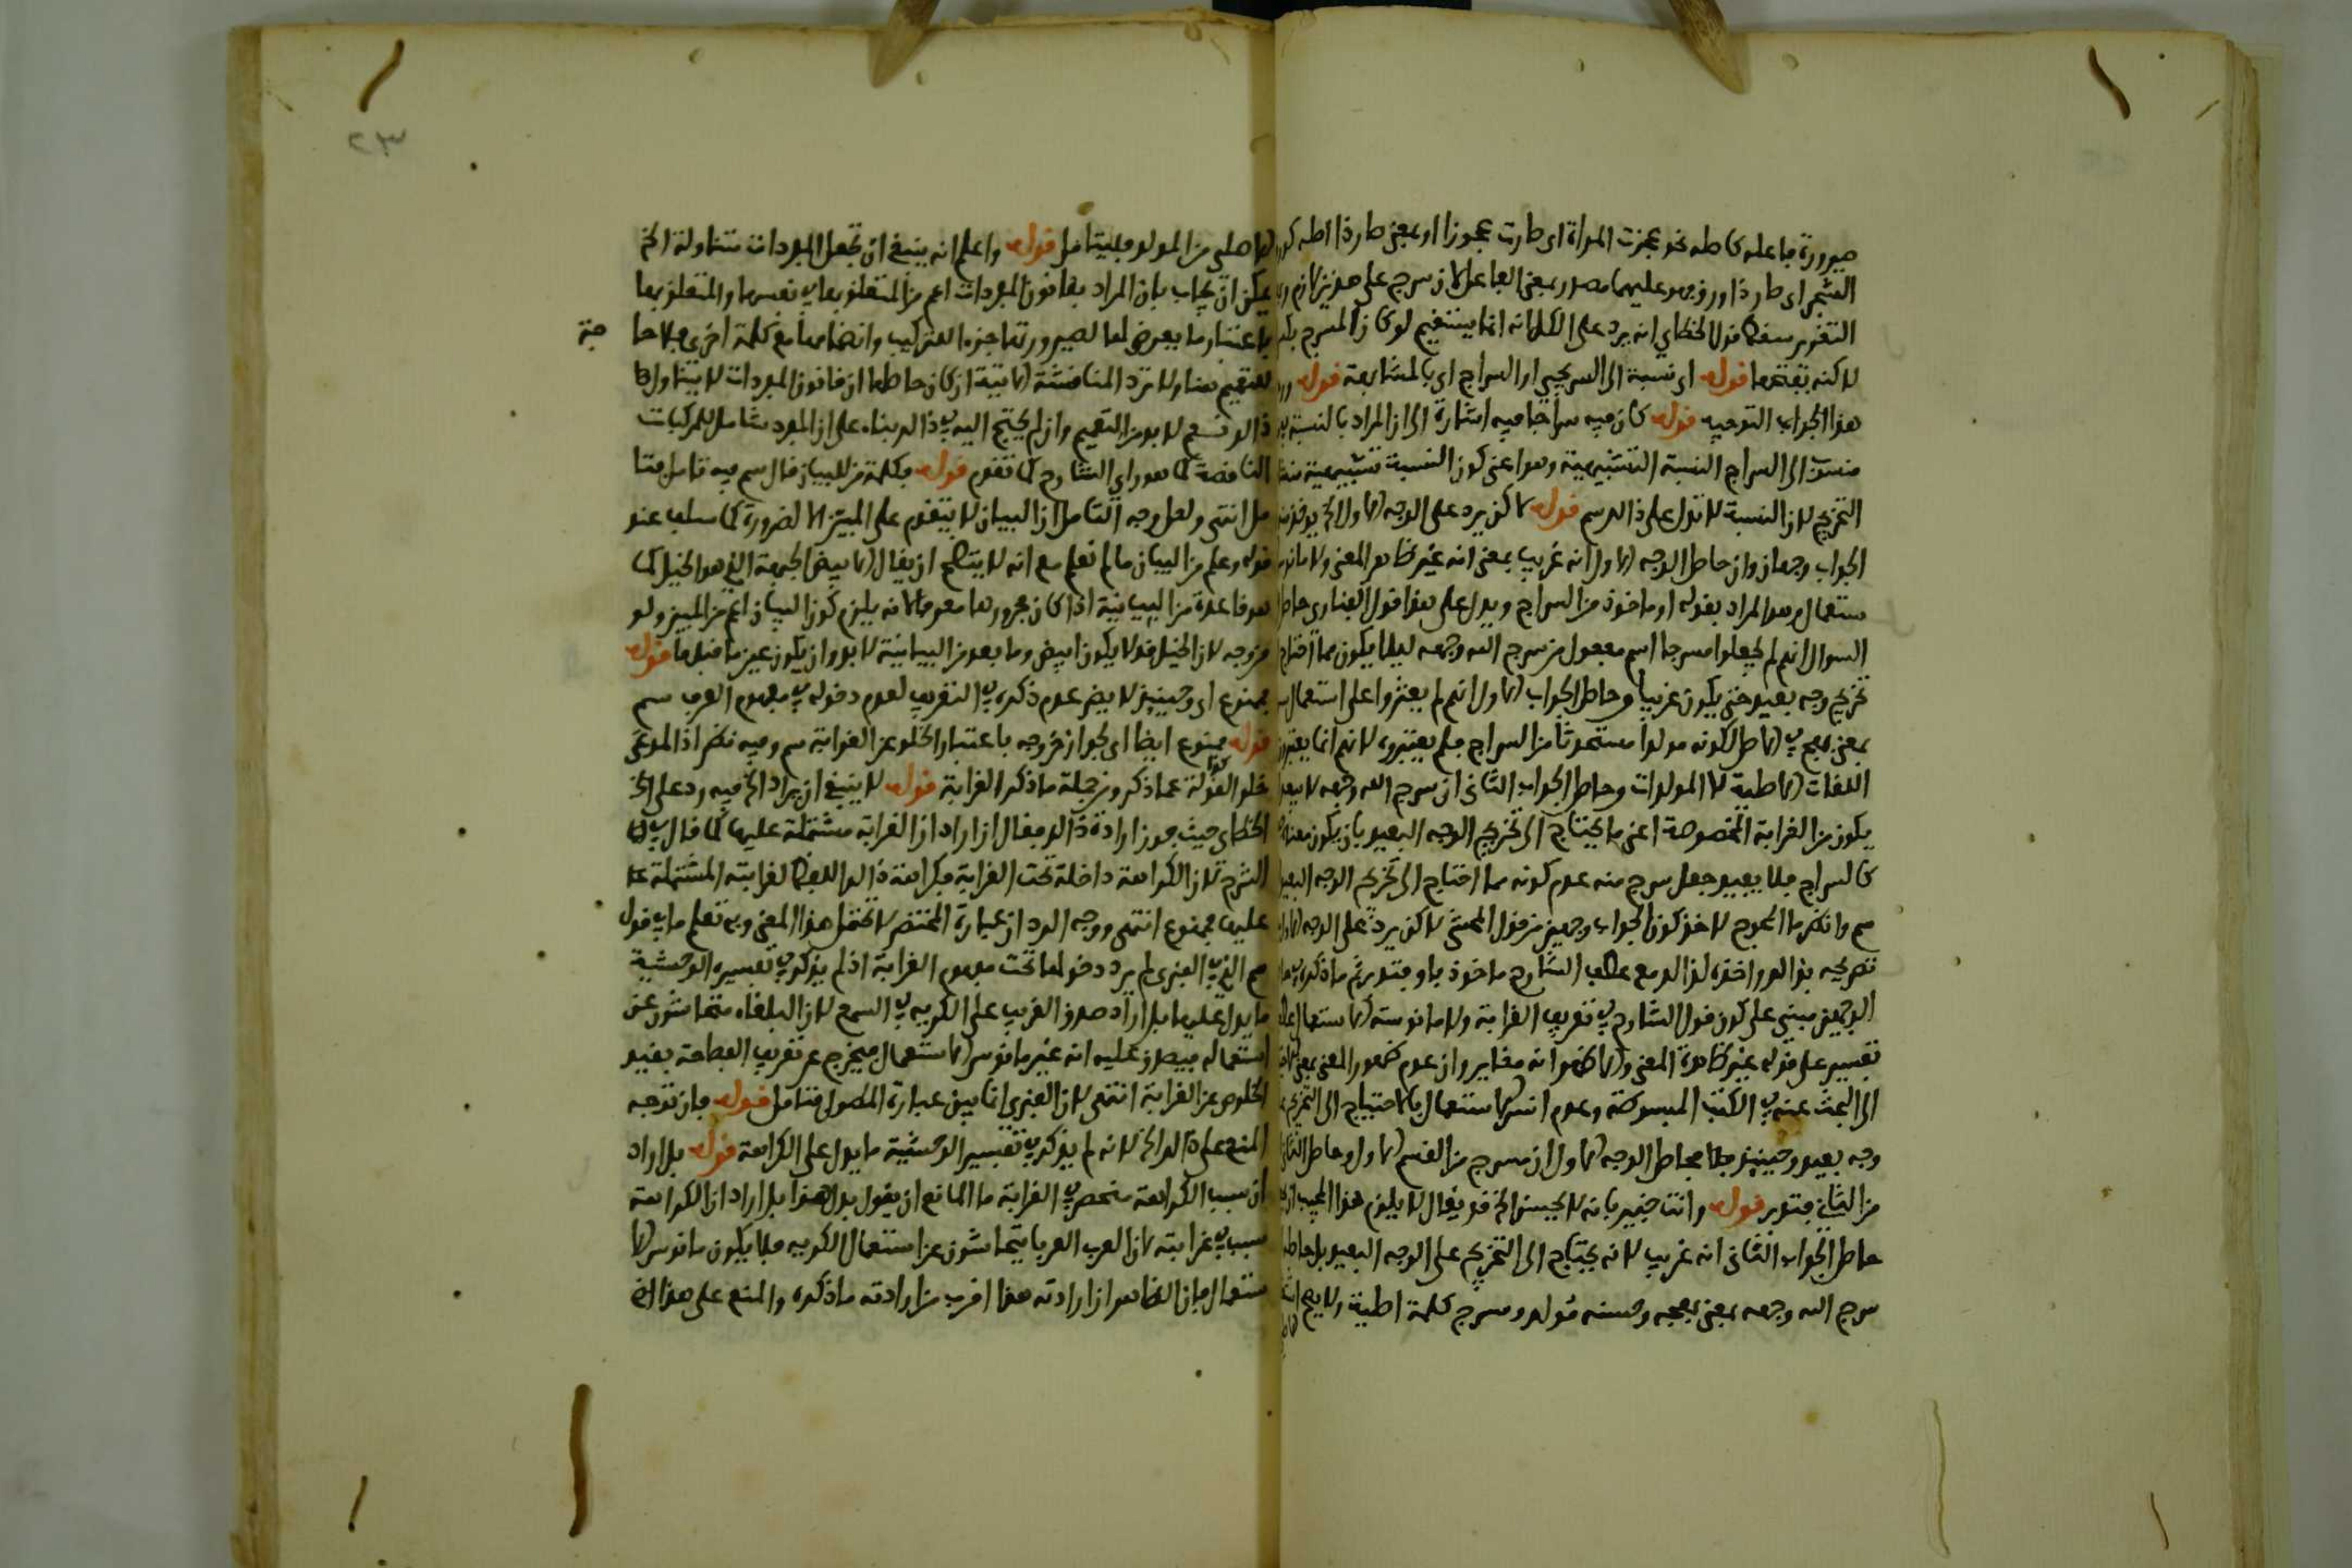 صيرورة فاعله كاصله نحو عجزت المراة اى صارت عجوزا او بمعنى صار ذا اصله
الشجر اى صار ذا ورق وهو عليهما مصدر بمعنى الفاعل لان سرج على هذين لازم
التقدير سقط قول الخطاي انه يرد على الكل انه انما يستقيم لو كان المسرج
لاكنه بقتحها قوله اى نسبة الى السريجي او السراج اى بالمشابهة قوله
هذا الجواب التوجيه قوله كان فيه سراجا فيه اشارة الى ان المراد بالنسبة
منسوب الى السراج النسبة التشبيهية وهو اعنى كون النسبة تشبيهية
التخريج لان النسبة لا تدل على ذالك سم قوله لاكن يرد على الوجه الاول الخ
الجواب وجهان وان حاصل الوجه الاول انه غريب بمعنى انه غير ظاهر المعنى ولا مانوس
ستعمال وهو المراد بقوله او ماخوذ من السراج ويدل على هذا قول الفنارى حاصل
السوال انهم لم يجعلوا مسرجا اسم مفعول من سرج الله وجهه ليلا يكون مما احتاج
تخريج وجه بعيد حتى يكون غريبا وحاصل الجواب الاول انهم لم يعثروا على استعمال
بمعنى بهج في الاصل لكونه مولدا مستحدثا من السراج فلم يعتبروه لانهم انما يعتبرون
اللغات الاصلية لا المولدات وحاصل الجواب الثانى ان سرج الله وجهه لا يبعد
يكون من الغرابة المخصوصة اعنى ما يحتاج الى تخريج الوجه البعيد بان يكون معناه
كالسراج فلا يفيد جعل سرج منه عدم كونه مما احتاج الى تخريج الوجه البعيد
سم وانظر ما المحوج لاخذ كون الجواب وجهين من قول المحشى لاكن يرد على الوجه الاول
تصريحه بذالك واخذه لذالك مع عطف الشارح ماخوذ باو فتدبر ثم ما ذكره
الوجهين مبنى على كون قول الشارح في تعريف الغرابة ولا مانوسة الاستعمال عطف
تفسير على قوله غير ظاهرة المعنى والاظهر انه مغاير وان عدم ظهور المعنى يعنى
الى البحث عنه في الكتب المبسوطة وعدم انس الاستعمال بالاحتياج الى التخريج
وجه بعيد وحينيذ فلا محاصل الوجه الاول ان مسرج من القسم الاول وحاصل الثانى
من الثانى فتدبر قوله وانت خبير بانه لا يحسن الخ قد يقال لا يلزم هذا المجيب
حاصل الجواب الثانى انه غريب لانه يحتاج الى التخريج على الوجه البعيد بل حاصل
سرج الله وجهه بمعنى بهجه وحسنه مولد ومسرج كلمة اصلية ولا يصح
٢٣
حاصلى من المولد فليتامل قوله واعلم انه ينبغى ان تجعل المفردات متناولة الخ
يمكن ان يجاب بان المراد بقانون المفردات اعم من المتعلق بها في نفسها والمتعلق بها
باعتبار ما يعرض لها لصيرورتها جزء التركيب وانضمامها مع كلمة اخرى فلا حا
جة
للتعميم هنا ولا ترد المناقشة الاتية اذ كان حاصلها ان قانون المفردات لا يتناول
ذالك و نعم لا بد من التعميم وان لم يحتج اليه في ذالك بناء على ان المفرد شامل للمركبات
الناقصة كما هو راي الشارح كما تقدم قوله فكلمة من للبيان قال سم فيه تامل فتا
مل انتهى ولعل وجه التامل ان البيان لا يتقدم على المبين الا لضرورة كما سلف عند
قوله وعلم من البيان ما لم نعلم مع انه لا يتصح ان يقال الابيض الجبهة الذي هو الخيل كما
هو قاعدة من البيانية اذا كان مجرورها معرفا لانه يلزم كون البيان اعم من المبين ولو
من وجه لان الخيل قد لا يكون ابيض وما بعد من البيانية لا بد وان يكون عين ما قبلها قوله
ممنوع اى وحينيذ لا يضر عدم ذكره في التعريف لعدم دخوله في مفهوم العرب سم
قوله ممنوع ايضا اى لجواز خروجه باعتبار الخلو عن الغرابة سم وفيه نظر اذ المدعى
خلو القولة عما ذكر ومن جملة ما ذكر الغرابة قوله لا ينبغى ان يراد الخ فيه رد على
الخطاى حيث جوز ارادة ذالك فقال ان اراد ان الغرابة مشتملة عليها كما قال في
الشرح لان الكراهة داخلة تحت الغرابة فكراهة ذالك اللفظ لغرابته المشتملة
عليها ممنوع انتهى ووجه الرد ان عبارة المختصر لا تحتمل هذا المعنى وبه تعلم ما في قول
سم الذي الغنرى لم يرد دخولها تحت مفهوم الغرابة اذ لم يذكر في تفسيره الوحشية
ما يدل عليها بل اراد صدق الغريب على الكريه في السمع لان البلغاء متحاشون عن
استعماله فيصدق عليه انه غير مانوس الاستعمال فيخرج عن تعريف الفصاحة بقيد
الخلوص عن الغرابة انتهى لان الغنرى انما بين عبارة المطول فتامل قوله فان توجه
المنع على ذالك الخ لانه لم يذكر في تفسير الوحشية ما يدل على الكراهة قوله بل اراد
ان سبب الكراهة منحصر في الغرابة ما المانع ان يقول بدل هذا بل اراد ان الكراهة
سبب في غرابته لان العرب العربا يتحاشون عن استعمال الكريه فلا يكون مانوس الا
ستعمال فان الظاهر ان ارادته هذا اقرب من ارادته ما ذكره والمنع على هذا